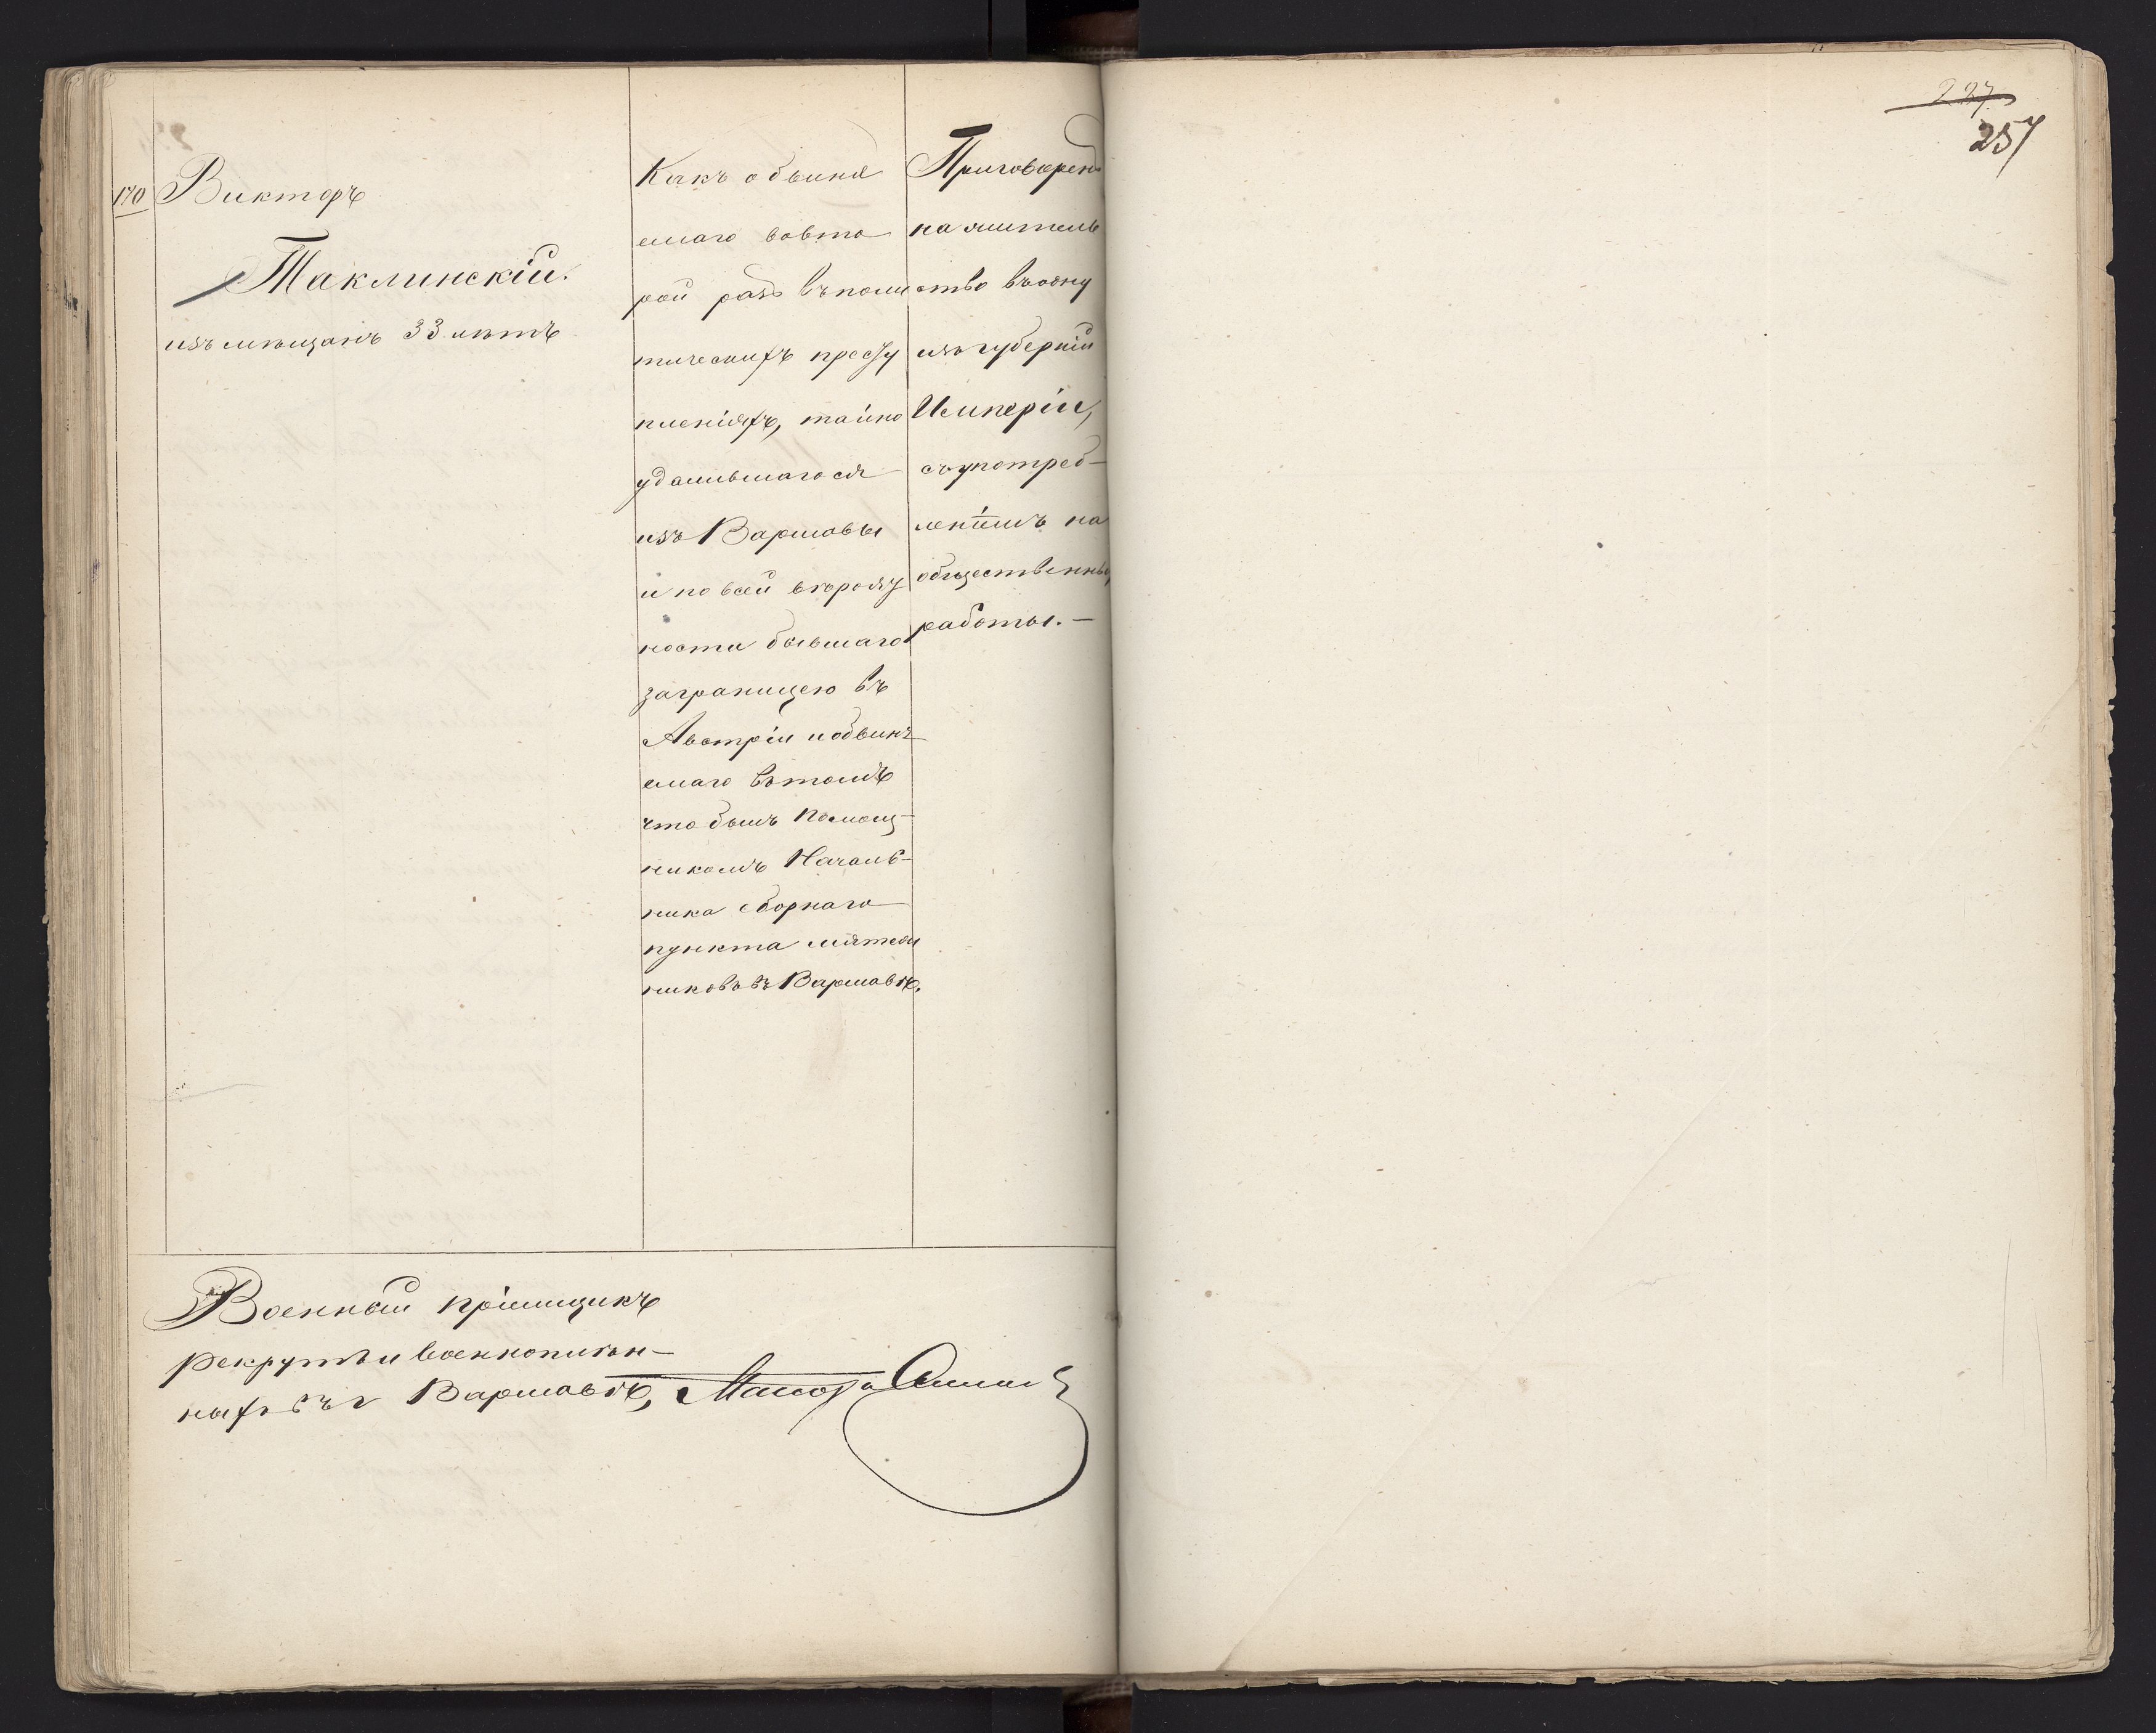 170
Викторъ
Таклинскій.
изъ мѣщанъ 33 лѣтъ
Какъ обвиня
емаго вовто
рой разъ въ поли
тическихъ престу
пленіяхъ, тайно
удалившагося
изъ Варшавы
и по всей вѣрояу
ности бывшаго
заграницею въ
Австріи и обвиня
емаго въ томъ
что былъ помощ-
никомъ Началь-
ника сборнаго
пункта мятеж
никовъ въ Варшавѣ.
Приговоренъ
на житель
ство въ одну
изъ губерній
Имперіи,
съ употреб-
леніемъ на
общественныя
работы.—
Военный пріемщикъ
рекрутъ и военноплѣн-
ныхъ въ г Варшавѣ, Маіоръ
227
257